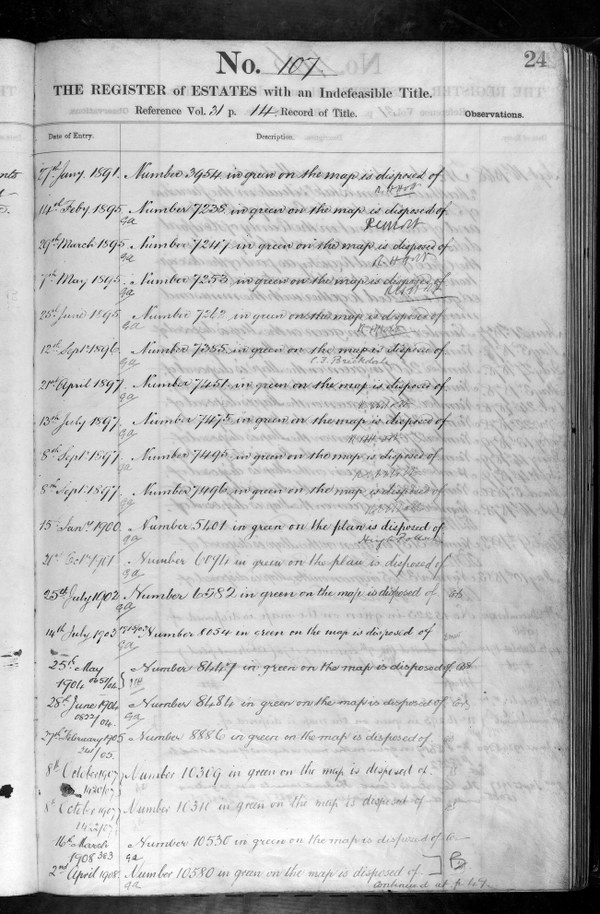 No. 107
24
THE REGISTER of ESTATES with an Indefeasible Title.
Reference Vol. 21 p. 14. Record of Title.
Observations.
Date of Entry.
Description.
27th Jany. 1891. Number 3954 in green on the map is disposed of
14th Feby 1895 Number 7238 in green on the map is disposed of
ga
29th March 1895 Number 7247 in green on the map is disposed of
ga
7th May 1895. Number 7253 in green on the map is disposed of
ga
25th June 1895. Number 7262 in green on the map is disposed of
ga
12th Sept. 1896. Number 7355 in green on the map is disposed of
ga C. F. Brickdale
21st April 1897. Number 7451 in green on the map is disposed of
ga
13th July 1897. Number 7475 in green on the map is disposed of
ga
8th Sept. 1897. Number 7495 in green on the map is disposed of
ga
8th Sept. 1897. Number 7496 in green on the map is disposed of
ga
15th Jany. 1900. Number 5401 in green on the plan is disposed of
ga
31st Octr. 1901 Number 6094 in green on the plan is disposed of
ga
25th July 1902 Number 6582 in green on the map is disposed of
ga
14th July 1903 Number 8054 in green on the map is disposed of
ga
25th May Number 8447 in green on the map is disposed of
1904
28th June 1904 Number 8484 in green on the map is disposed of
0822/04. ga
27th February 1905 Number 8886 in green on the map is disposed of
/05.
8th October 1907 Number 10309 in green on the map is disposed of
1420/07
8th October 1907 Number 10310 in green on the map is disposed of
1422/07
16th March Number 10530 in green on the map is disposed of
1908 363 ga
2nd April 1908. Number 10580 in green on the map is disposed of
ga continued at p. 169.